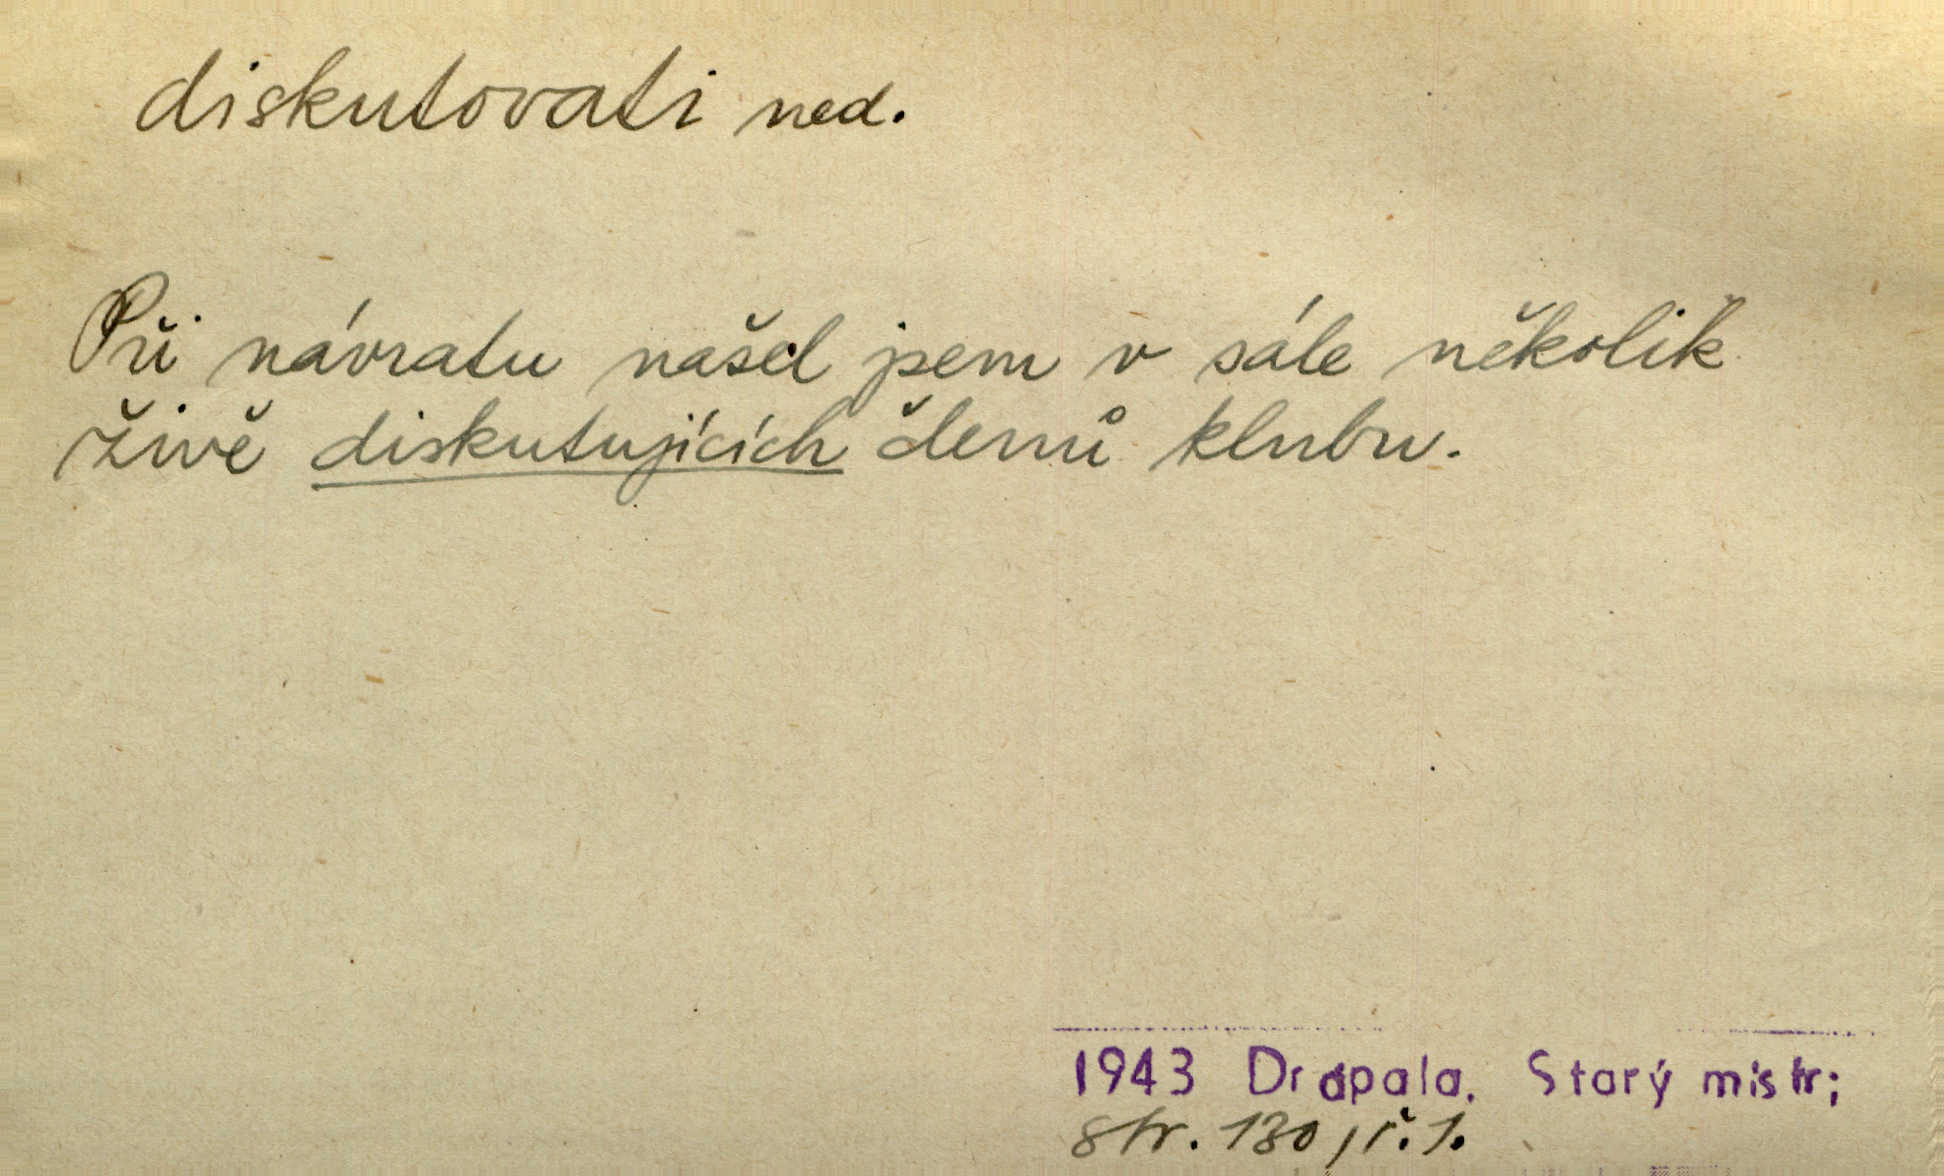 diskutovati ned.
Při návratu našel jsem v sále několik
živě diskutujících členů klubu.
1943 Drápala. Starý mistr;
str. 130, ř. 1.